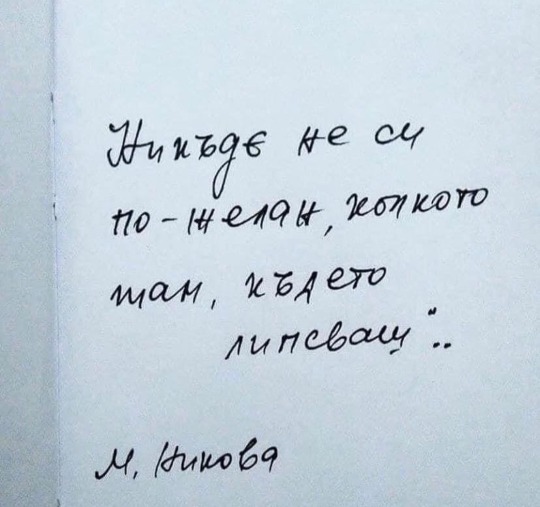 Никъде не си
по-желан, колкото
там, където
липсваш"..
М. Никова